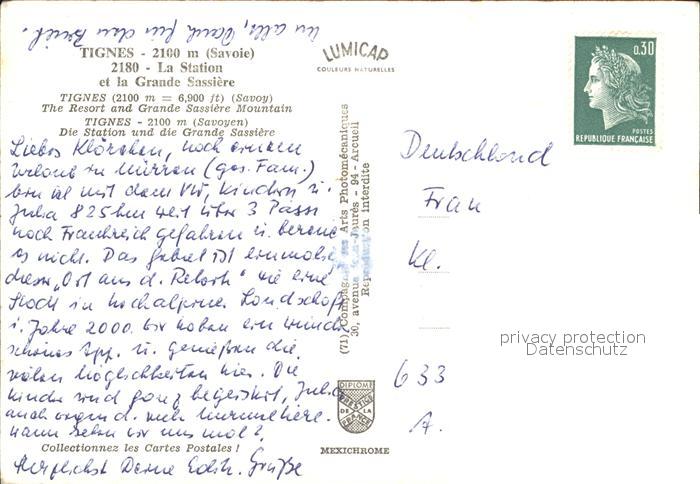 TIGNES - 2100 m (Savoie)
2180 - La Station
et la Grande Sassière
TIGNES (2100 m = 6,900 ft) (Savoy)
The Resort and Grande Sassière Mountain
TIGNES - 2100 m (Savoyen)
Die Station und die Grande Sassière
Liebes Klärchen, nach einem
Urlaub in Mürren (ges. Fam.)
bin ich mit dem VW, Kindern u.
Julia 825 km weit über 3 Pässe
nach Frankreich gefahren u. bereue
es nicht. Das Gebiet ist einmalig
dieser „Ort aus d. Retorte" wie eine
Stadt in hochalpiner Landschaft
i. Jahre 2000. Wir haben ein wunder
schönes App. u. genießen die
vielen Möglichkeiten hier. Die
Kinder sind ganz begeistert, Julia
auch wegen d. vielen Murmeltiere.
Wann sehen wir uns mal?
Collectionnez les Cartes Postales !
Herzlichst Deine Edith. Grüße
an alle, Dank für den Brief.
LUMICAP
COULEURS NATURELLES
(71) Compagnie des Arts Photomécaniques
30, avenue Jean-Jaurès - 94 - Arcueil
Reproduction interdite
DIPLOME
PRESTIGE
DE LA
FRANCE
MEXICHROME
0,30
POSTES
REPUBLIQUE FRANÇAISE
Deutschland
Frau
Kl.
633
A.
privacy protection
Datenschutz